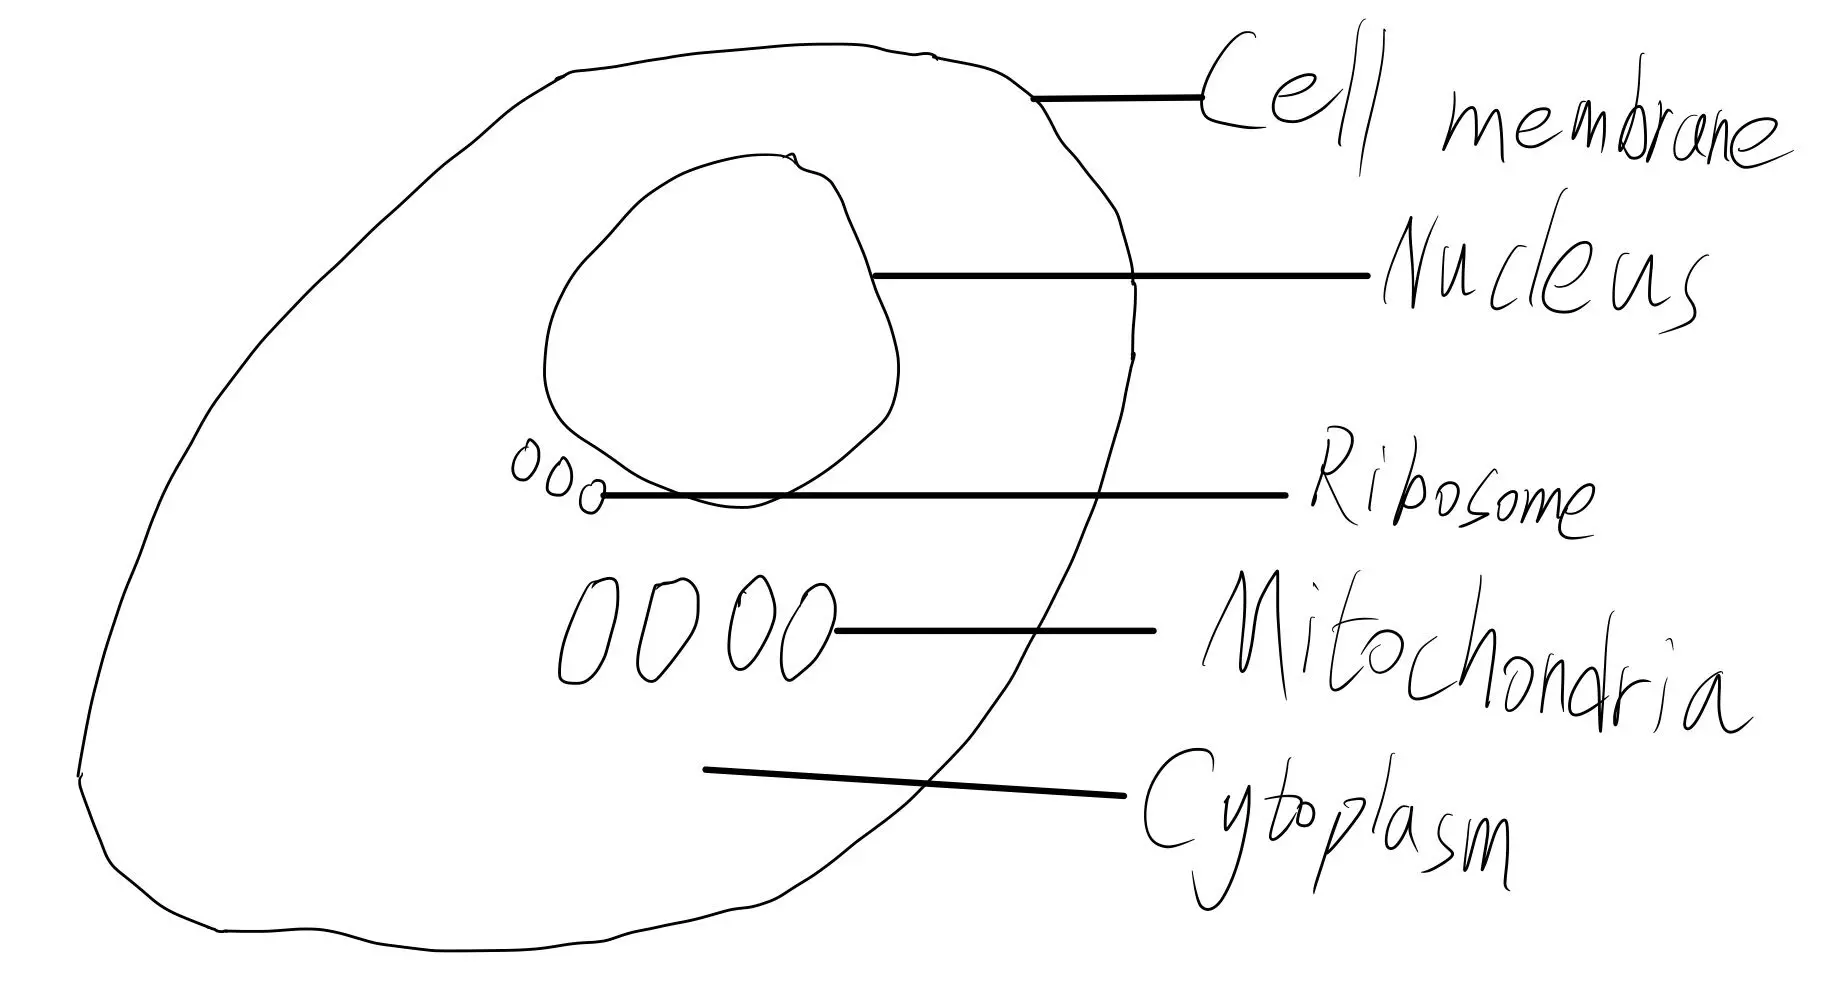 Cell membrane
Nucleus
Ribosome
Mitochondria
Cytoplasm